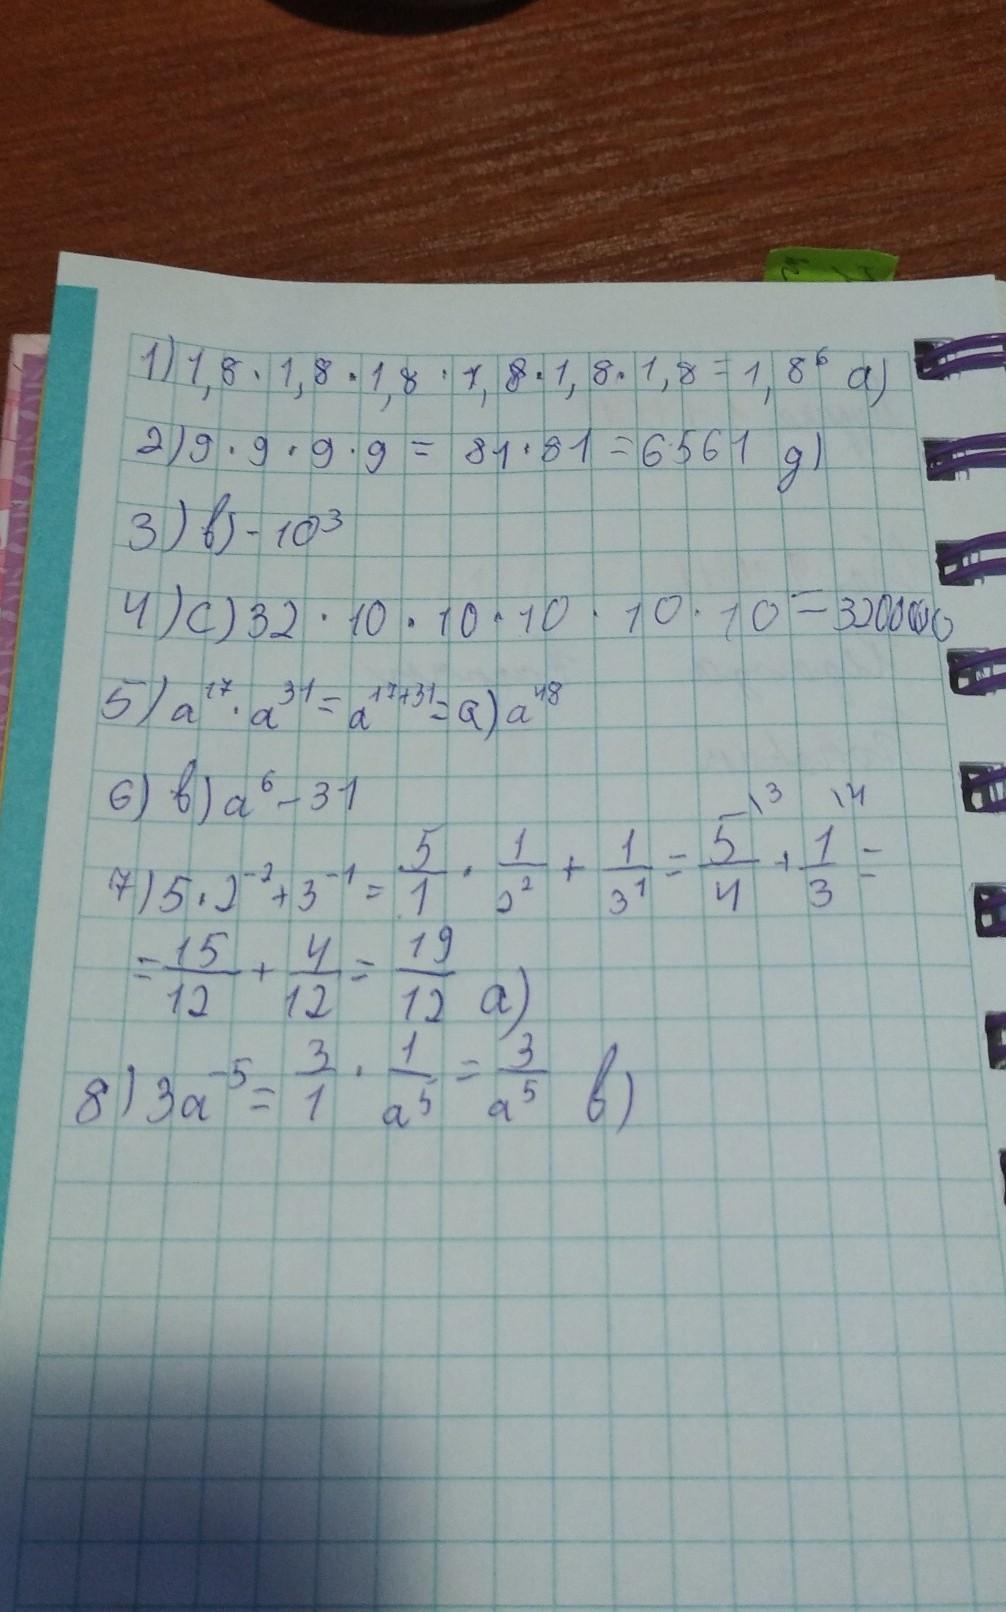 1) 1,8 · 1,8 · 1,8 · 1,8 · 1,8 · 1,8 = 1,8⁶ a)
2) 9 · 9 · 9 · 9 = 81 · 81 = 6561 д)
3) в) - 10³
4) с) 32 · 10 · 10 · 10 · 10 · 10 = 3200000
5) a¹⁷ · a³¹ = a¹⁷⁺³¹ = a) a⁴⁸
6) в) a⁶ - 31
7) 5 · 2⁻² + 3⁻¹ = 5/1 · 1/2² + 1/3¹ = 5/4 \3 + 1/3 \4 =
= 15/12 + 4/12 = 19/12 a)
8) 3a⁻⁵ = 3/1 · 1/a⁵ = 3/a⁵ в)